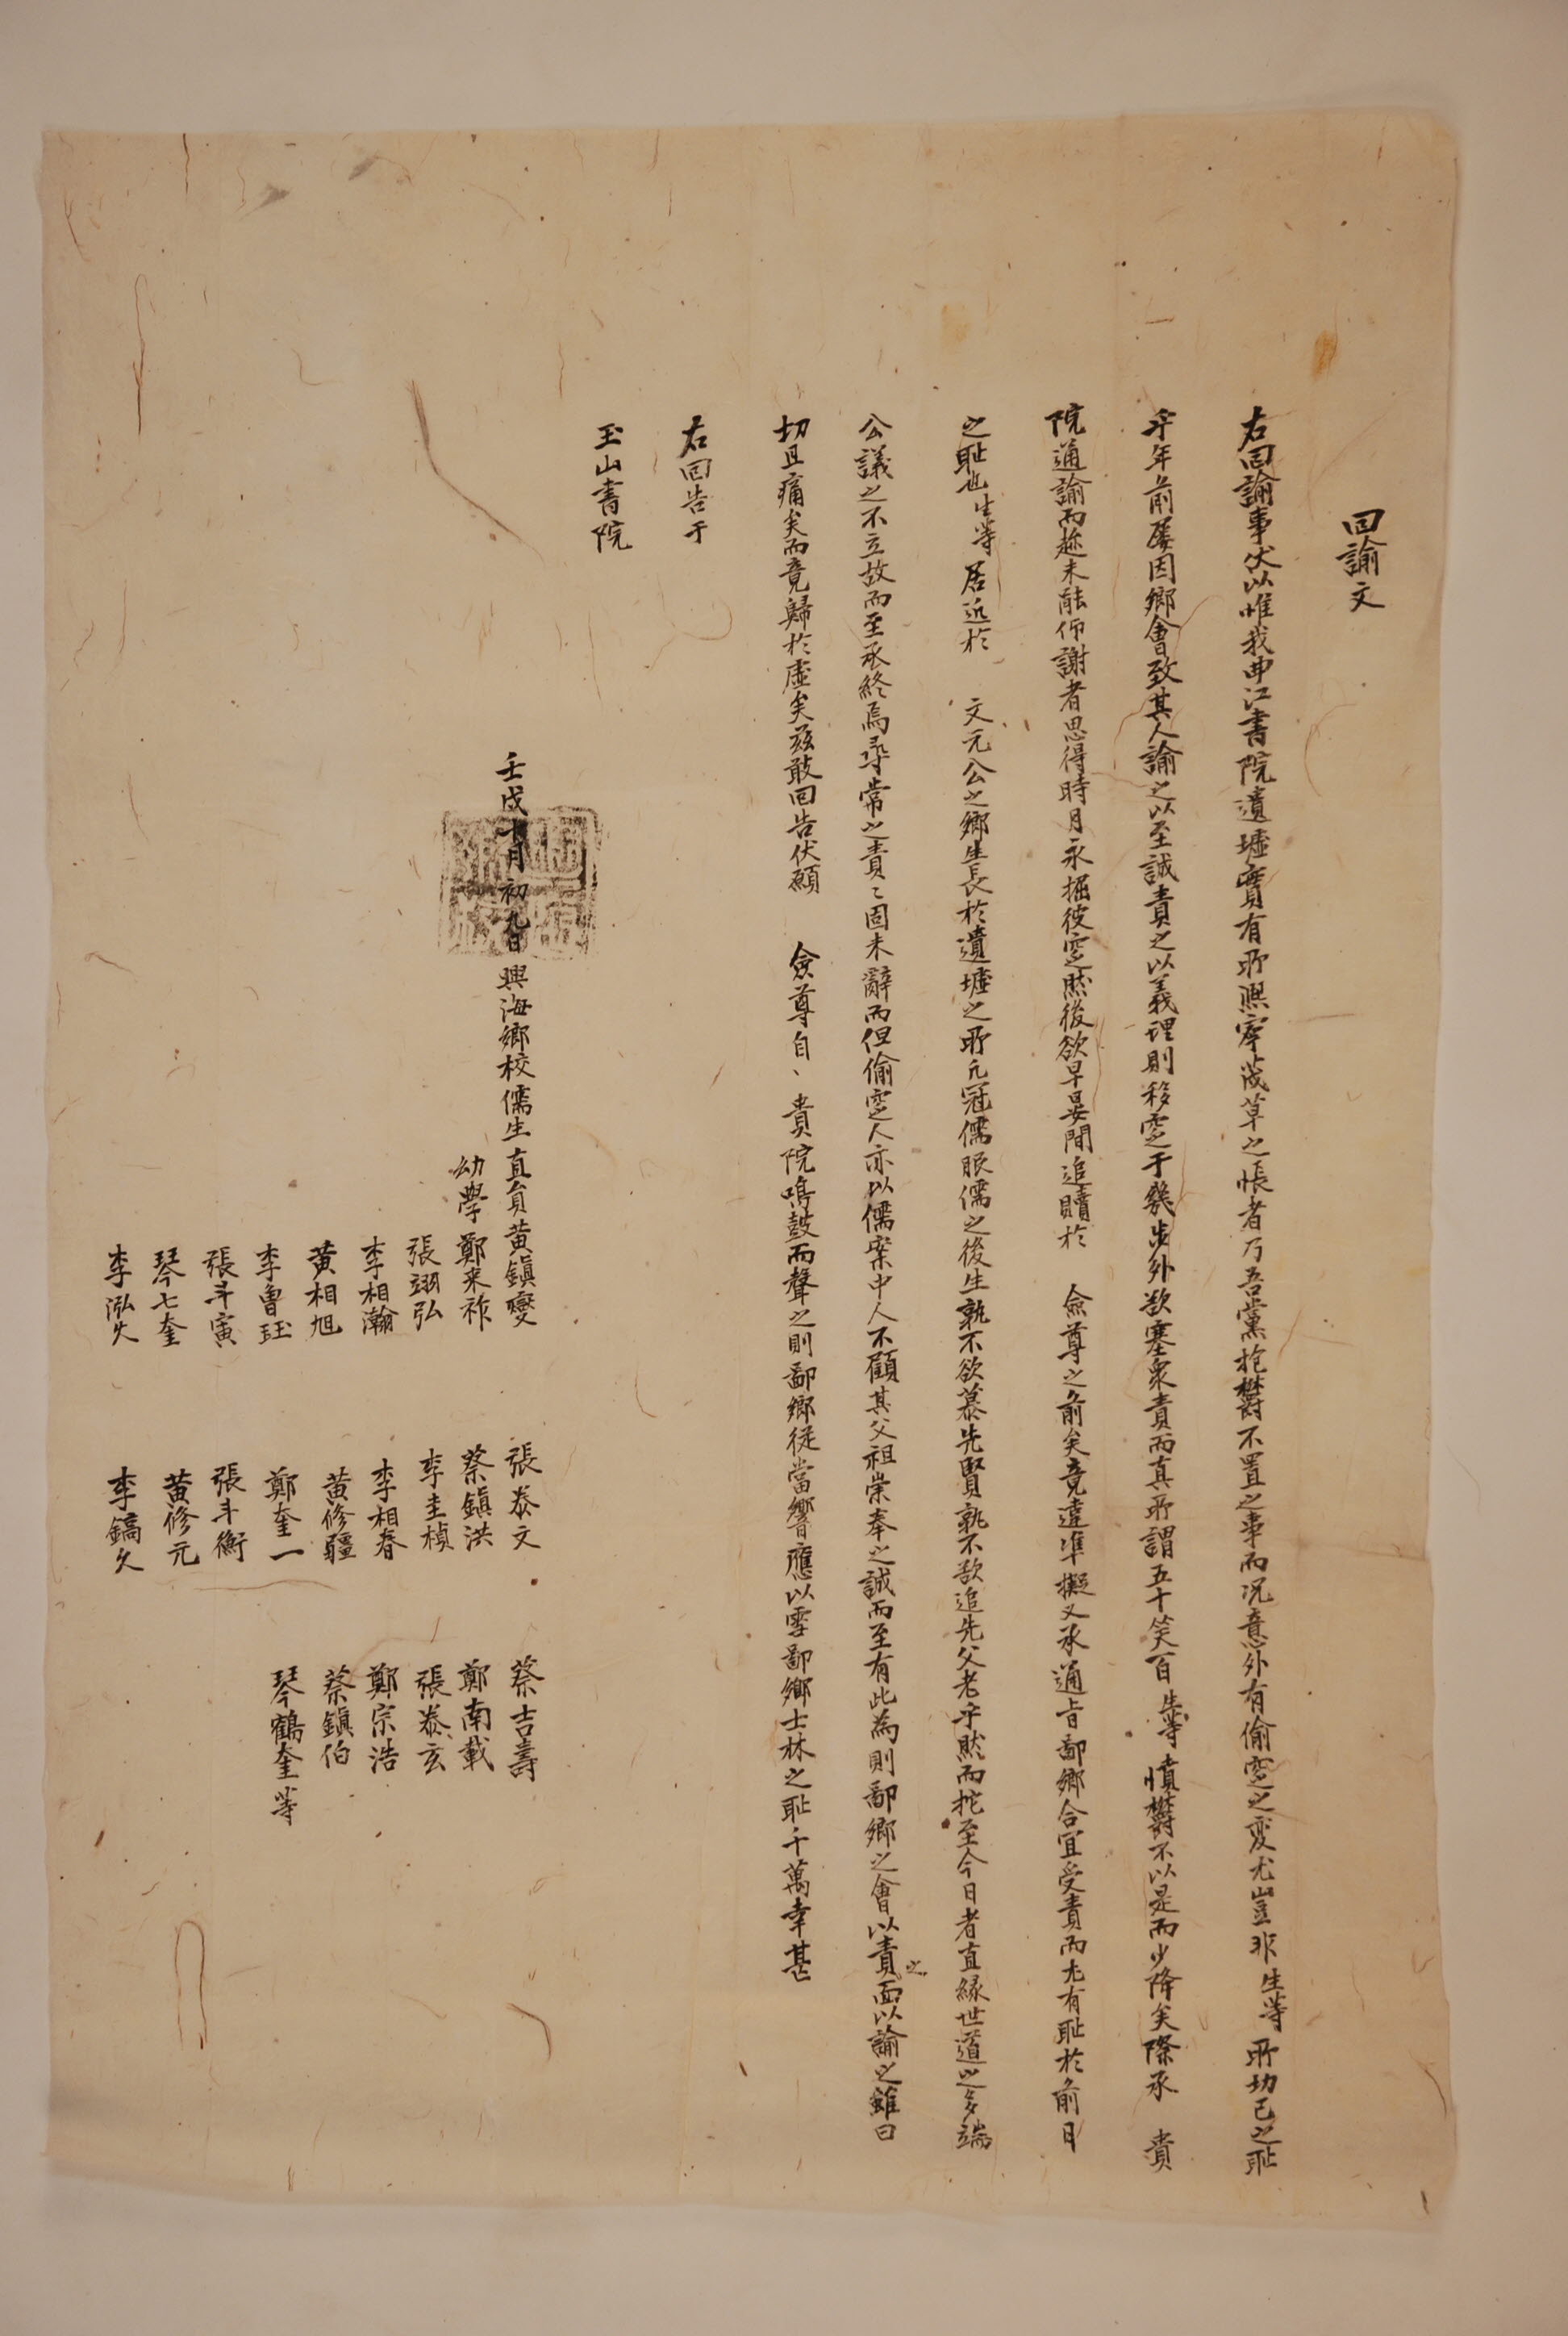 回諭文
右回諭事伏以惟我曲江書院遺墟實有所鞠茂草之悵者乃吾黨抱欝不置之事而况意外有偷窆之変尤豈非生等所切己之恥
乎年前屡因鄉會致其人諭之以至誠責之以義理則移窆于幾步外欲塞衆責而真所謂五十笑百生等憤欝不以是而少降矣際承 貴
院通諭而趂未能仰謝者思得時月永掘彼窆然後欲早晏間追贖於 僉尊之前矣竟違準擬又承通旨鄙鄉合宜受責而尤有恥於前日
之恥也生等居近於 文元公之鄉生長於遺墟之所凢冠儒服儒之後生孰不欲慕先賢孰不欲追先父老乎然而拕至今日者直緣世道之多端
公議之不立故而至承終焉尋常之責〻固未辭而但偷窆人亦以儒案中人不顧其父祖崇奉之誠而至有此為則鄙鄉之會以責之面以諭之雖曰
切且痛矣而竟歸於虛矣茲敢回告伏願 僉尊自、貴院鳴鼓而聲之則鄙鄉從當響應以雪鄙鄉士林之恥千萬幸甚
右回告于
玉山書院
壬戌十月初九日興海鄉校儒生直員黃鎭燮 張泰文 蔡吉壽
幼學鄭来祚 蔡鎭洪 鄭南載
張翊弘 李圭楨 張泰玄
李相瀚 李相春 鄭宗浩
黃相旭 黃修疆 蔡鎭伯
李魯珏 鄭奎一 琴鶴奎等
張斗寅 張斗衡
琴七奎 黃修元
李泓久 李鎬久